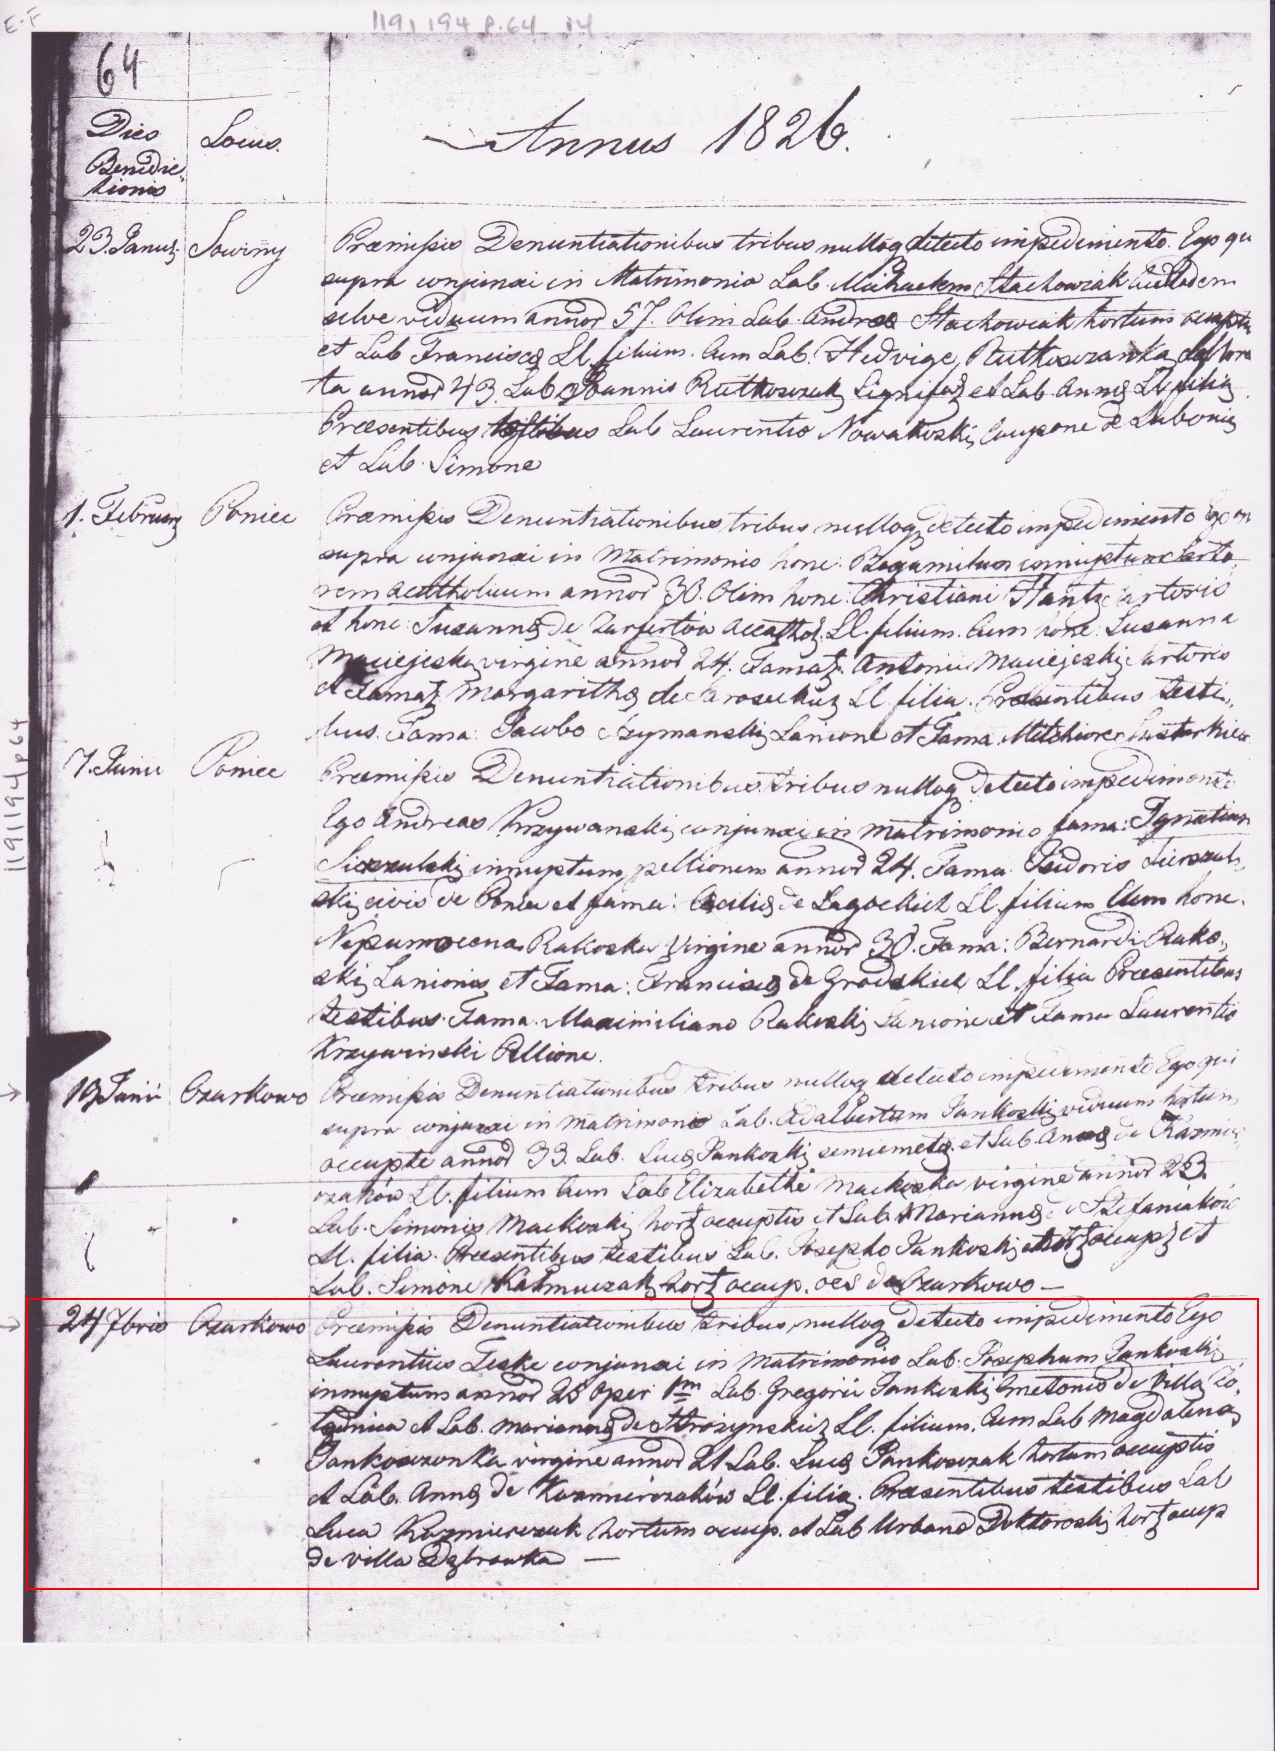 E-F
1191194 p.64 34
64
Dies
Benedic,
tionis
Locus.
Annus 1826.
23. Januar Sowiny Præmissis Denuntiationibus tribus nulloq detecto impedimento. Ego qu
supra conjunxi in Matrimonio Lab. Michaelem Stachowiak
viduum annor 57. Olim Lab. Andreæ Stachowiak hortum
et Lab Franciscæ Ll. filium. Cum Lab. Hedvige Rutkoszanka
ta annor 43. Lab Joannis Rutkoszak Lignifa et Lab. Annæ Ll. filia
Præsentibus testibus Lab Laurentio Nowakoski Caupone de Lubonia
et Lab. Simone
1. February Poniec Præmissis Denuntiationibus tribus nulloq detecto impedimento Ego
supra conjunxi in Matrimonio hone: Bogumilum innuptum Sarto,
rem acatholicum annor 30. Olim hone: Christiani Hantz Sartoris
et hone: Susannæ de Ll. filium. Cum hone: Susanna
Maciejeska virgine annor 24. Famat. Antonii Maciejeski Sartoris
et Famat Margarithæ de Ll. filia. Præsentibus testi,
bus. Fama: Jacobo Szymanski Lanione et Fama Melchiore
7. Junii Poniec Præmissis Denuntiationibus tribus nulloq detecto impedimento
Ego Andreas Krzywanski conjunxi in Matrimonio fama: Ignatium
innuptum pellionem annor 24. Fama Isidoris
ski civis de Poniec et fama: Cecilia de Ll. filium Cum hone.
Nepumocena Rakoska Virgine annor 30. Fama: Bernardi Rako,
ski Lanionis et Fama: Franciscæ de Grodzkich Ll. filia Præsentibus
testibus Fama. Maximiliano Rakoski Lanione et Fama Laurentio
Krzywinski Pellione.
Junii Czarkowo Præmissis Denuntiationibus tribus nulloq detecto impedimento Ego qui
supra conjunxi in Matrimonio Lab. Adalbertum Jankoski viduum hortum,
occupte annor 33. Lab. Lucæ Jankoski semicmeto et Lab. Annæ de Kazmier
czaków Ll. filium Cum Lab Elizabethe Mackoska virgine annor 23.
Lab. Simonis Mackoski hort occuptis et Lab Mariannæ de Stefaniaków
Ll. filia. Præsentibus testibus Lab. Josepho Jankoski hort occup et
Lab. Simone Kazmierczak hort occup. oes de Czarkowo —
24 7bris Czarkowo Præmissis Denuntiationibus tribus nulloq detecto impedimento Ego
Laurentius Teske conjunxi in Matrimonio Lab. Josephum Jankoski
innuptum annor 28 oper 1m Lab. Gregorii Jankoski Cmetonis de Villa
et Lab. Mariannæ de Ll. filium. Cum Lab Magdalena
Jankoszonka virgine annor 21 Lab. Lucæ Jankoszak hortum occuptis
et Lab. Annæ de Kazmierczaków Ll. filia. Præsentibus testibus Lab
Luca Kazmierczak hortum occup. et Lab Urbano Doktoroski hort occup
de villa Dąbrowka —
1191194 p 64